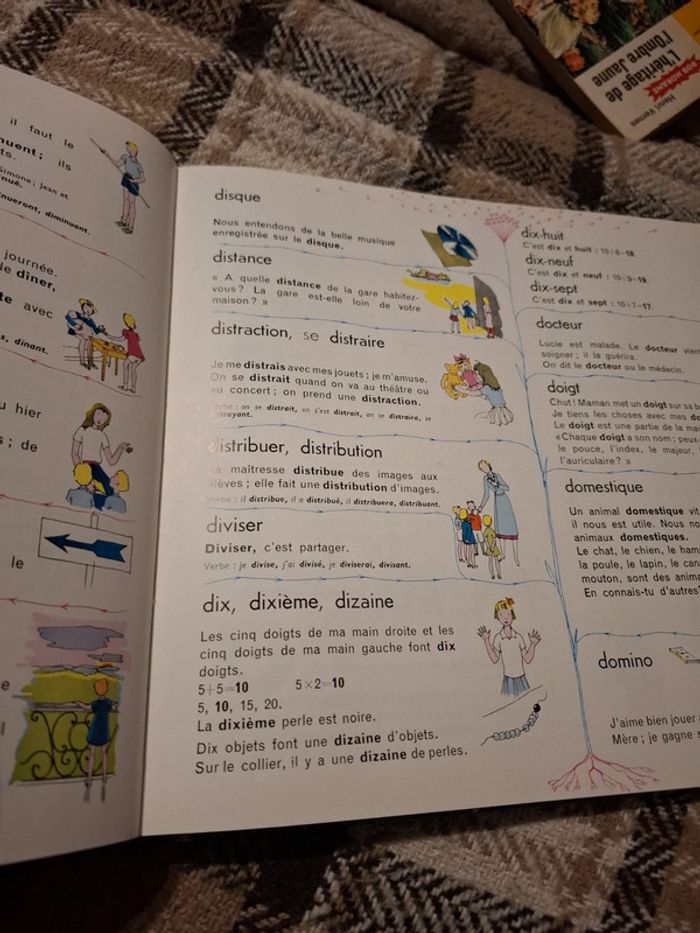 il faut le
nuent; ils
ts.
Simone; jean et
nué.
nueront, diminuant.
journée.
le dîner,
te avec
s, dinant.
u hier
s; de
le
disque
Nous entendons de la belle musique
enregistrée sur le disque.
distance
« A quelle distance de la gare habitez-
vous ? La gare est-elle loin de votre
maison ? »
distraction, se distraire
Je me distrais avec mes jouets; je m'amuse.
On se distrait quand on va au théâtre ou
au concert; on prend une distraction.
Verbe : on se distrait, on s'est distrait, on se distraira, se
distrayant.
distribuer, distribution
La maîtresse distribue des images aux
élèves; elle fait une distribution d'images.
Verbe : il distribue, il a distribué, il distribuera, distribuant.
diviser
Diviser, c'est partager.
Verbe : je divise, j'ai divisé, je diviserai, divisant.
dix, dixième, dizaine
Les cinq doigts de ma main droite et les
cinq doigts de ma main gauche font dix
doigts.
5+5=10 5×2=10
5, 10, 15, 20.
La dixième perle est noire.
Dix objets font une dizaine d'objets.
Sur le collier, il y a une dizaine de perles.
dix-huit
C'est dix et huit : 10+8=18.
dix-neuf
C'est dix et neuf : 10+9=19.
dix-sept
C'est dix et sept : 10+7=17.
docteur
Lucie est malade. Le docteur vien
soigner; il la guérira.
On dit le docteur ou le médecin.
doigt
Chut ! Maman met un doigt sur sa b
Je tiens les choses avec mes do
Le doigt est une partie de la mai
« Chaque doigt a son nom; peux-
le pouce, l'index, le majeur, l
l'auriculaire ? »
domestique
Un animal domestique vit
il nous est utile. Nous no
animaux domestiques.
Le chat, le chien, le ham
la poule, le lapin, le can
mouton, sont des anima
En connais-tu d'autres?
domino
J'aime bien jouer a
Mère; je gagne s
Henri Vernes
BOB MORANE
L'héritage de
l'Ombre Jaune